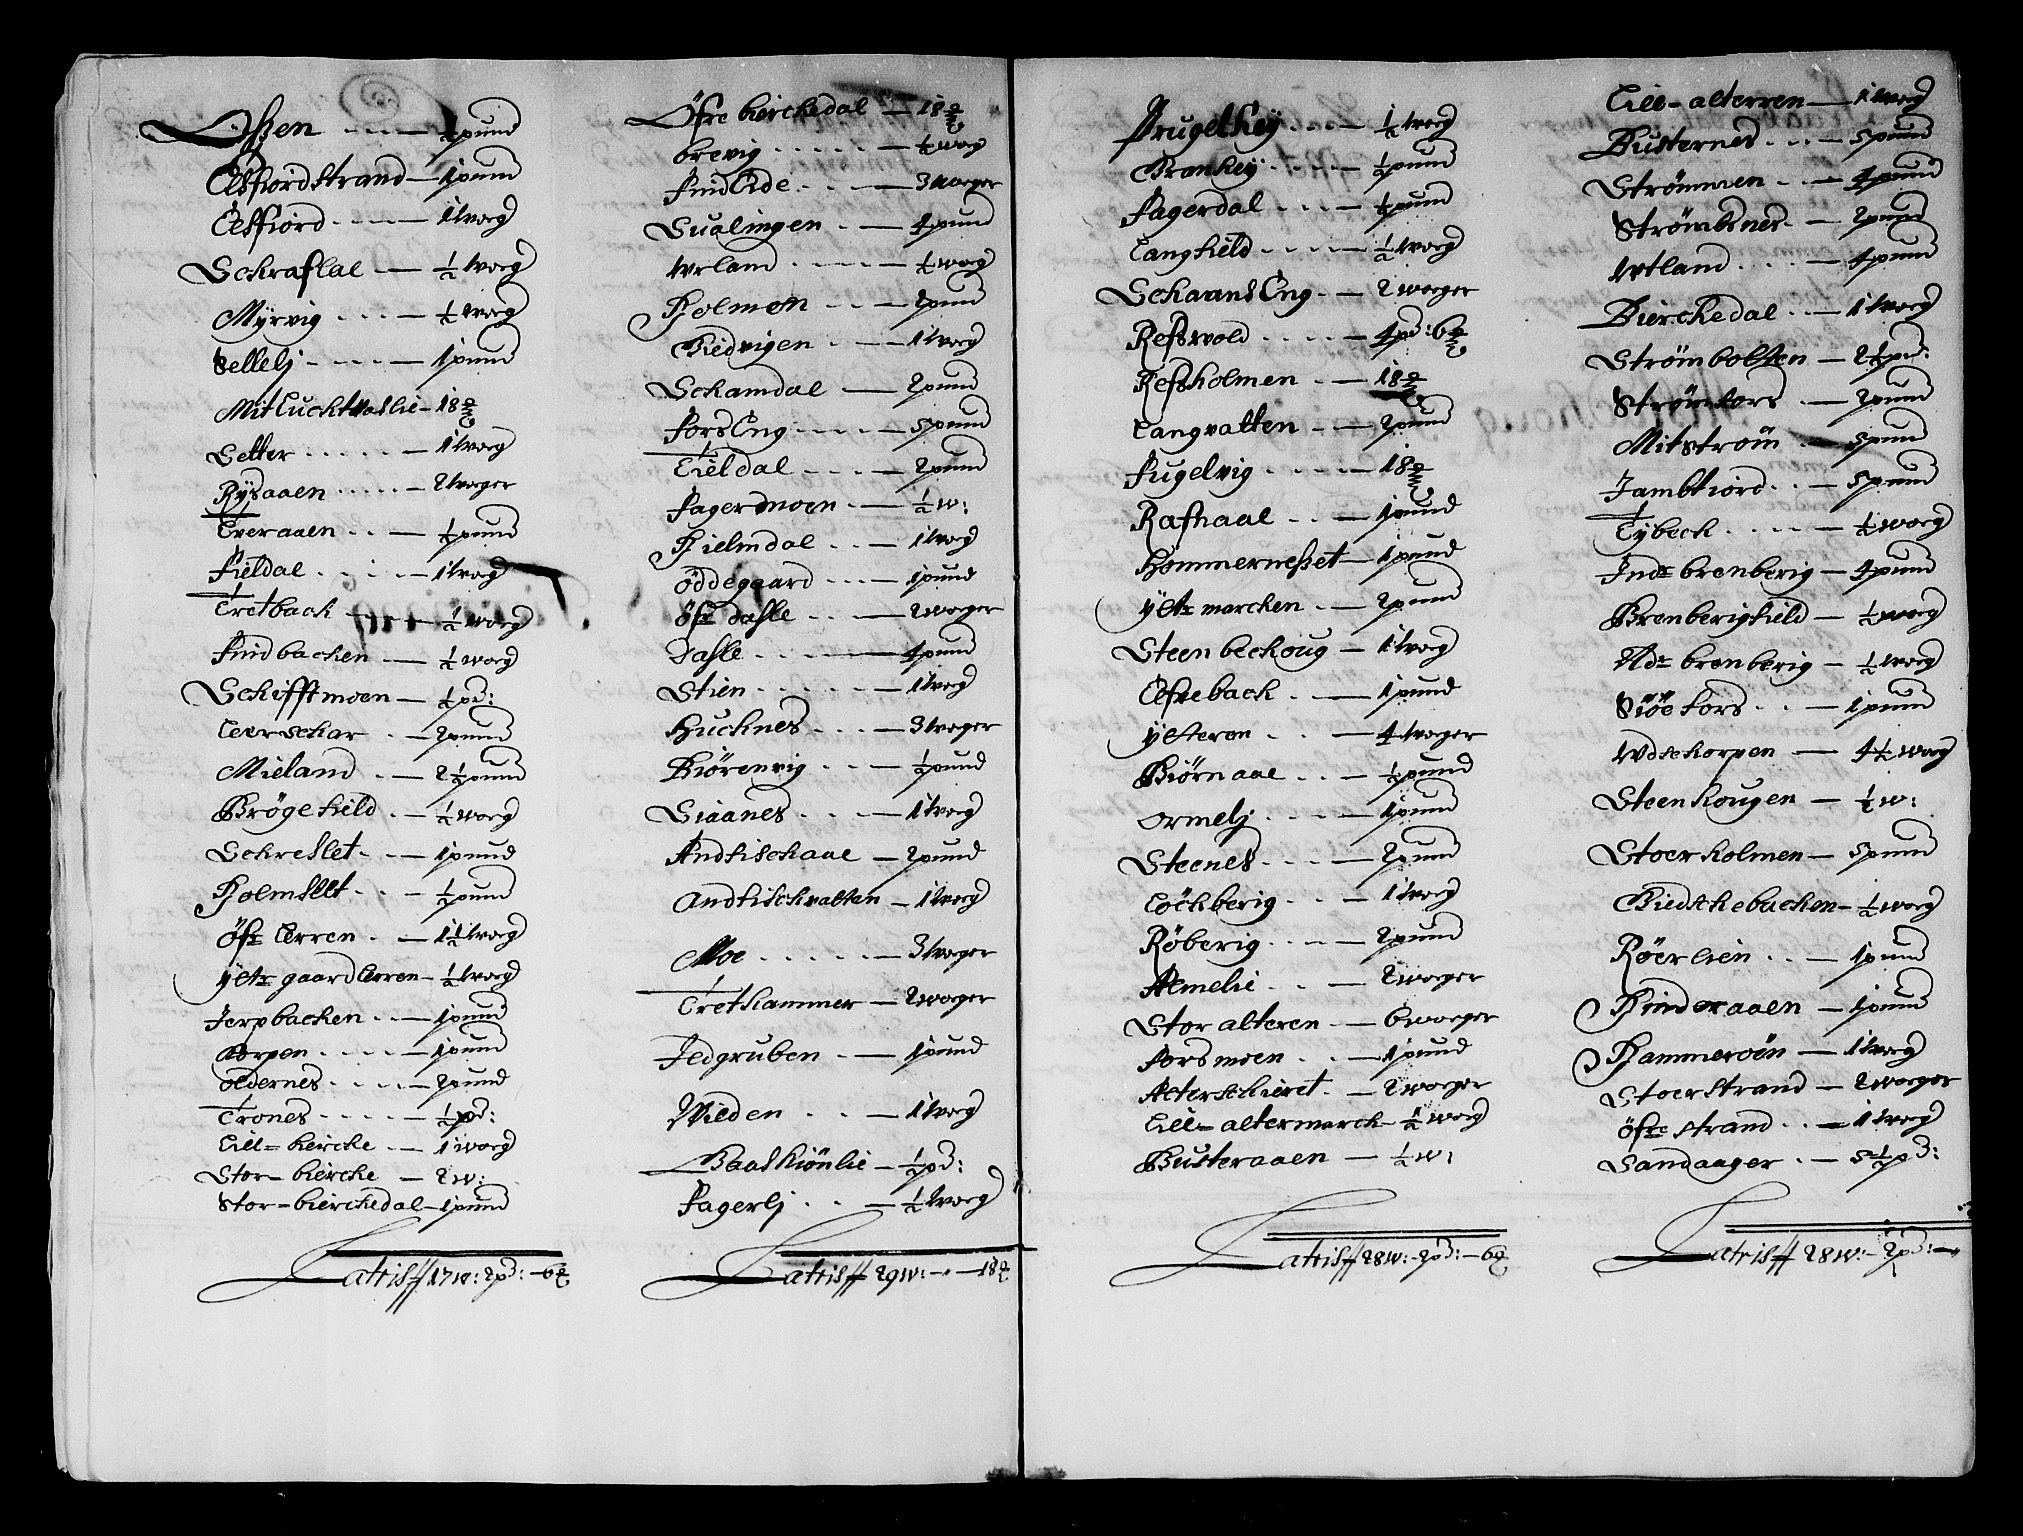 Elsfiordstrand — 1 pund
Elsfiord — 1 woeg
Schraflal — ½ woeg
Myrvig — ½ woeg
Sellelj — 1 pund
Setter — 1 woeg
Rysaaen — 2 woeger
Tveraaen — ½ pund
Fieldal — 1 woeg
Tretback — ½ woeg
Findbacken — ½ woeg
Schifftmoen — ½ pd:
Leerschar — 2 pund
Mieland — 2½ pund
Brøgefield — ½ woeg
Schreslet — 1 pund
Holmslet — ½ pund
Öfre Lerren — 1½ woeg
Ytre gaard Lerren — ½ woeg
Jerpbacken — 1 pund
Korpen — 1 pund
Oldernes — 2 pund
Trones — ½ pd:
Lill-bircke — 1 woeg
Stor-bircke — 2 w:
Stor-birckedal — 1 pund
Latris ff 17 w: 2 pd: — 6
Öfre birckedal — 18
brevig — ½ woeg
Find Eide — 3 woeger
Sualingen — 4 pund
Urland — ½ woeg
Holmen — 2 pund
Kiedvigen — 1 woeg
Schamdal — 2 pund
Fors Eng — 5 pund
Tieldal — 2 pund
Fagermoen — ½ w:
Hielmdal — 1 woeg
Ödegaard — 1 pund
Öfre Dahle — 2 woeger
Dahle — 4 pund
Stien — 1 woeg
Hucknes — 3 woeger
Biørenvig — ½ pund
Siaanes — 1 woeg
Andfischaae — 2 pund
Andfischvatten — 1 woeg
Moe — 3 woeger
Tret hammer — 2 woeger
Jedgruben — 1 pund
Wilden — 1 woeg
Baaskiønlie — ½ pd:
Fagerlj — ½ woeg
Latris ff 29 w: — 18
Prugelhey — ½ woeg
Branhey — ½ pund
Fagerdal — ½ pund
Langfield — ½ woeg
Schaans Eng — 2 woeger
Refswold — 4 pd: 6
Refsholmen — 18
Langvatten — 2 pund
Fugelvig — 18
Rafnaae — 1 pund
Hommerneset — 1 pund
Ytre marcken — 2 pund
Steenbeckoug — 1 woeg
Esfreback — 1 pund
Ytteren — 4 woeger
Biørnaae — ½ pund
Ormelj — 1 pund
Steenes — 2 pund
Løckberig — 1 woeg
Røberig — 2 pund
Almelie — 2 woeger
Storalteren — 6 woeger
Forsmoen — 1 pund
Alterschieret — 2 woeger
Lill-altermarck — ½ woeg
Busteraaen — ½ w:
Latris ff 28 w: 2 pd: — 6
Lill-alterren — 1 woeg
Busternes — 5 pund
Strømmen — 4 pund
Strømbsnes — 2 pund
Utland — 4 pund
Birckedal — 1 woeg
Strømbotten — 2½ pd:
Strømfors — 2 pund
Mitstrøm — 5 pund
Jambtiord — 5 pund
Tybeck — ½ woeg
Indre brenberig — 4 pund
Brenberigfield — ½ woeg
Ydre brenberig — ½ woeg
Siøefors — 1 pund
Udschorpen — 4½ woeg
Steenhougen — ½ w:
Stoerholmen — 5 pund
Bredschebacken — ½ woeg
Røerlien — 1 pund
Hinderaaen — 1 pund
Hammerøen — 1 woeg
Stoerstrand — 2 woeger
Öfre strand — 1 woeg
Sandaager — 5½ pd:
Latris ff 28 w: 2 pd: